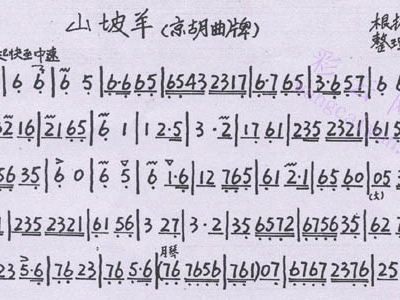 山坡羊(京胡曲牌)
根据
整理
起快至中速
| 6 6 | 6 5 | 6·6 65 | 6543 2317 | 6·7 65 | 3·6 57 | 6 6
32 16 | 21 65 | 6 1 | 1 2·5 | 3·2 | 17 61 | 235 2321 | 615
56 35 | 6 0 | 6 5 | 6 1·6 | 12 765 | 61 2·1 | 65 60 | 05 3
| 235 2321 | 61 56 | 3 27 | 3·2 | 35 6572 | 6756 35 | 62 7
月琴
23 5·6 | 76 23 | 76 5·6 | (76 7656 | 761) 07 | 6767 2376 | 25